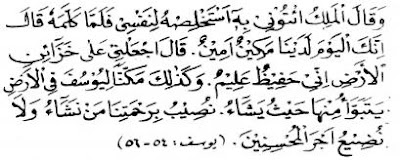 وَقَالَ الْمَلِكُ ائْتُونِي بِهِ أَسْتَخْلِصْهُ لِنَفْسِي فَلَمَّا كَلَّمَهُ قَالَ
إِنَّكَ الْيَوْمَ لَدَيْنَا مَكِينٌ أَمِينٌ. قَالَ اجْعَلْنِي عَلَى خَزَائِنِ
الْأَرْضِ إِنِّي حَفِيظٌ عَلِيمٌ. وَكَذٰلِكَ مَكَّنَّا لِيُوسُفَ فِي الْأَرْضِ
يَتَبَوَّأُ مِنْهَا حَيْثُ يَشَاءُ. نُصِيبُ بِرَحْمَتِنَا مَنْ نَشَاءُ وَلَا
نُضِيعُ أَجْرَ الْمُحْسِنِينَ. (يوسف: ٥٤-٥٦)